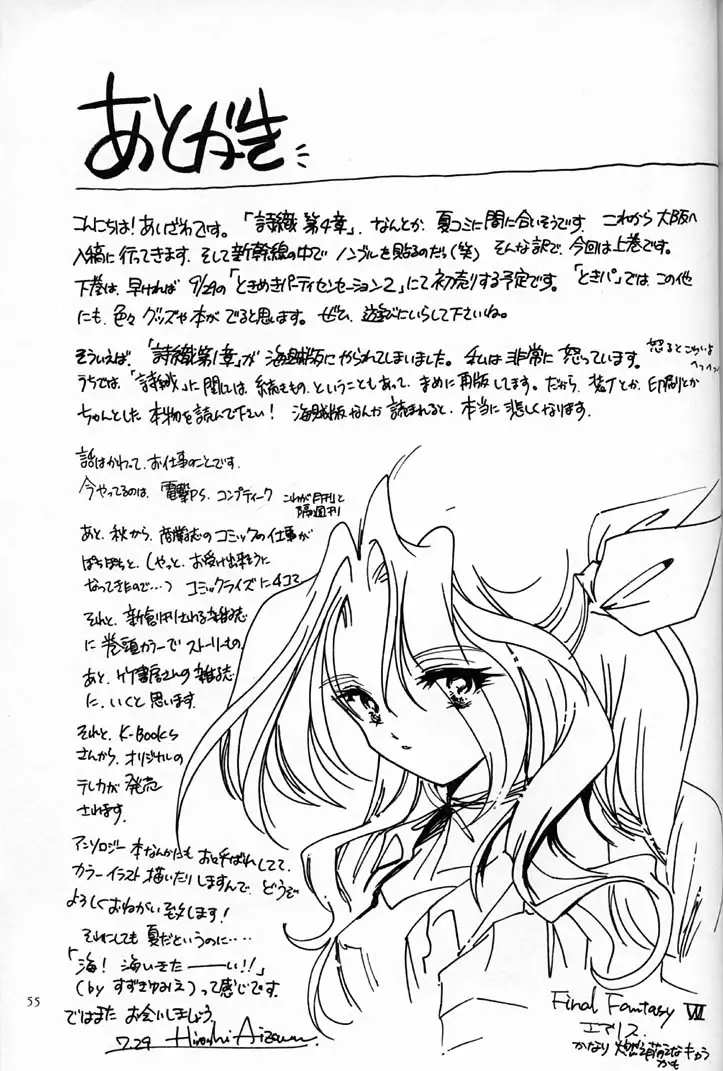 あとがき
こんにちは！あいざわです。「詩織 第4章」、なんとか、夏コミに間に合いそうです。これから大阪へ
入稿に行ってきます。そして新幹線の中でノンブルを貼るのだっ(笑) そんな訳で、今回は上巻です。
下巻は、早ければ 9/29の「ときめきパーティセンセーション2」にて初売りする予定です。「ときパ」では、この他
にも、色々グッズや本がでると思います。ぜひ、遊びにいらして下さいね。
そういえば、「詩織第1章」が海賊版にやられてしまいました。私は非常に怒っています。
怒るとこわいよ
へっへっへっ
うちでは、「詩織」に関しては、続きもの、ということもあって、まめに再版してます。だから、装丁とか、印刷とか
ちゃんとした本物を読んで下さい！海賊版なんか読まれると、本当に悲しくなります。
話はかわって、お仕事のことです。
今やってるのは、電撃PS、コンプティーク
これが月刊と
隔週刊
あと、秋から、商業誌のコミックの仕事が
ぽちぽちと、(やっと、お受け出来そうに
なってきたので…) コミックライズに4コマ
それと、新創刊される雑誌
に巻頭カラーでストーリーもの
あと、竹書房さんの雑誌
に、いくと思います。
それと、K-Books
さんから、オリジナルの
テレカが発売
されます。
アンソロジー本なんかにもお呼ばれしてて、
カラーイラスト描いたりしますんで、どうぞ
よろしくおねがい致します！
それにしても夏だというのに‥‥
「海！海いきたーーい!!」
(by すずきゆみえ)って感じです。
ではまたお会いしましょう。
7.29 Hiroshi Aizawa.
Final Fantasy VII
エアリス。
かなり 萌えなキャラ
かも
55